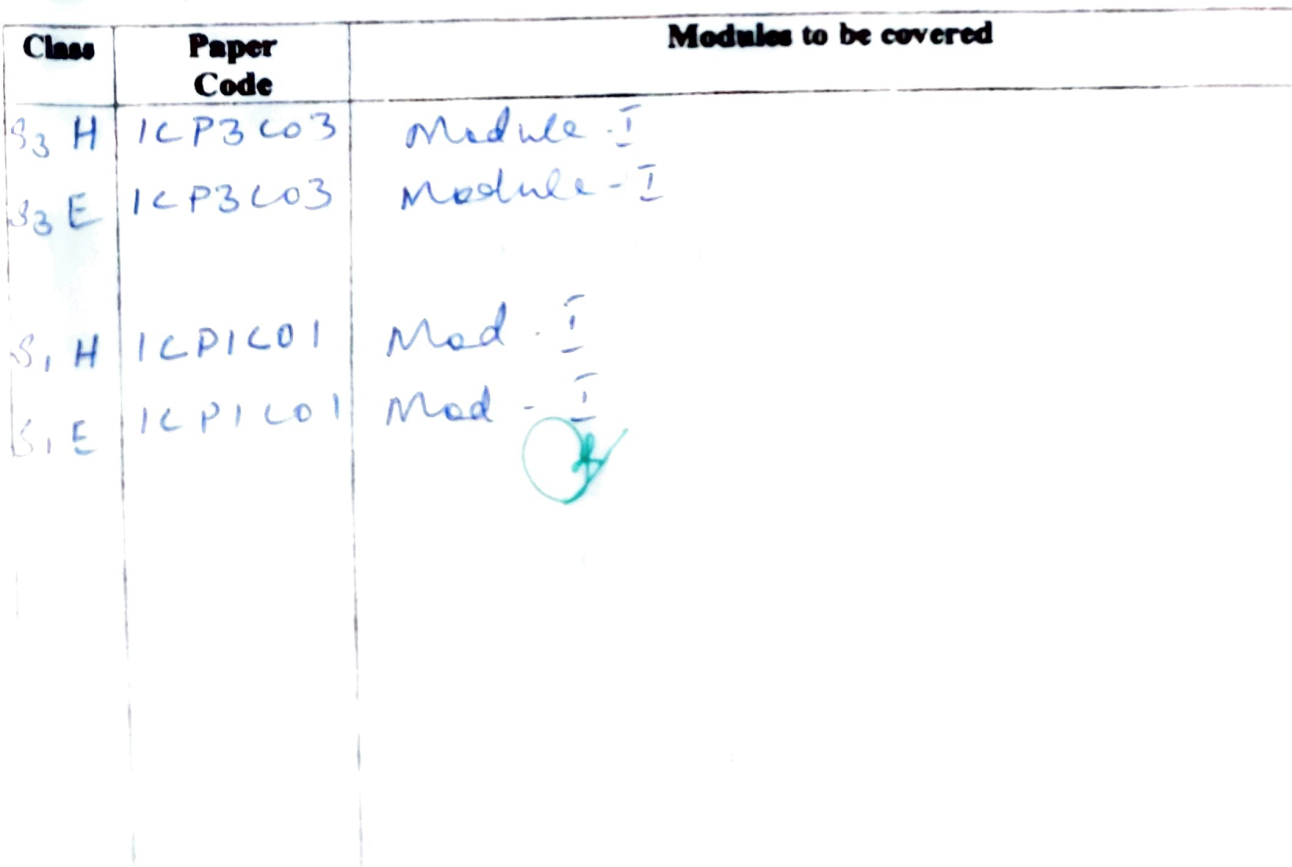 Class Paper Code Modules to be covered
S3 H 1CP3C03 Module - I
S3 E 1CP3C03 Module - I
S1 H 1CP1C01 Mod - I
S1 E 1CP1C01 Mod - I